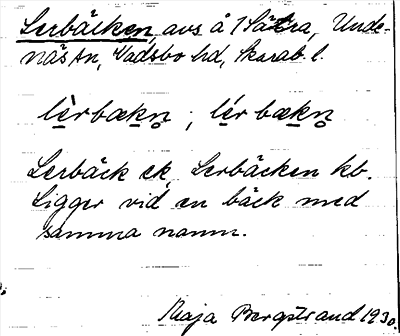 Lerbäcken, avs å 1 Sätra, Unde-
näs sn, Vadsbo hd, Skarab. l.
lèrbækn̥ ; lér bækn̥
Lerbäck ek, Lerbäcken kb.
Ligger vid en bäck med
samma namn.
Maja Bergstrand 1930.